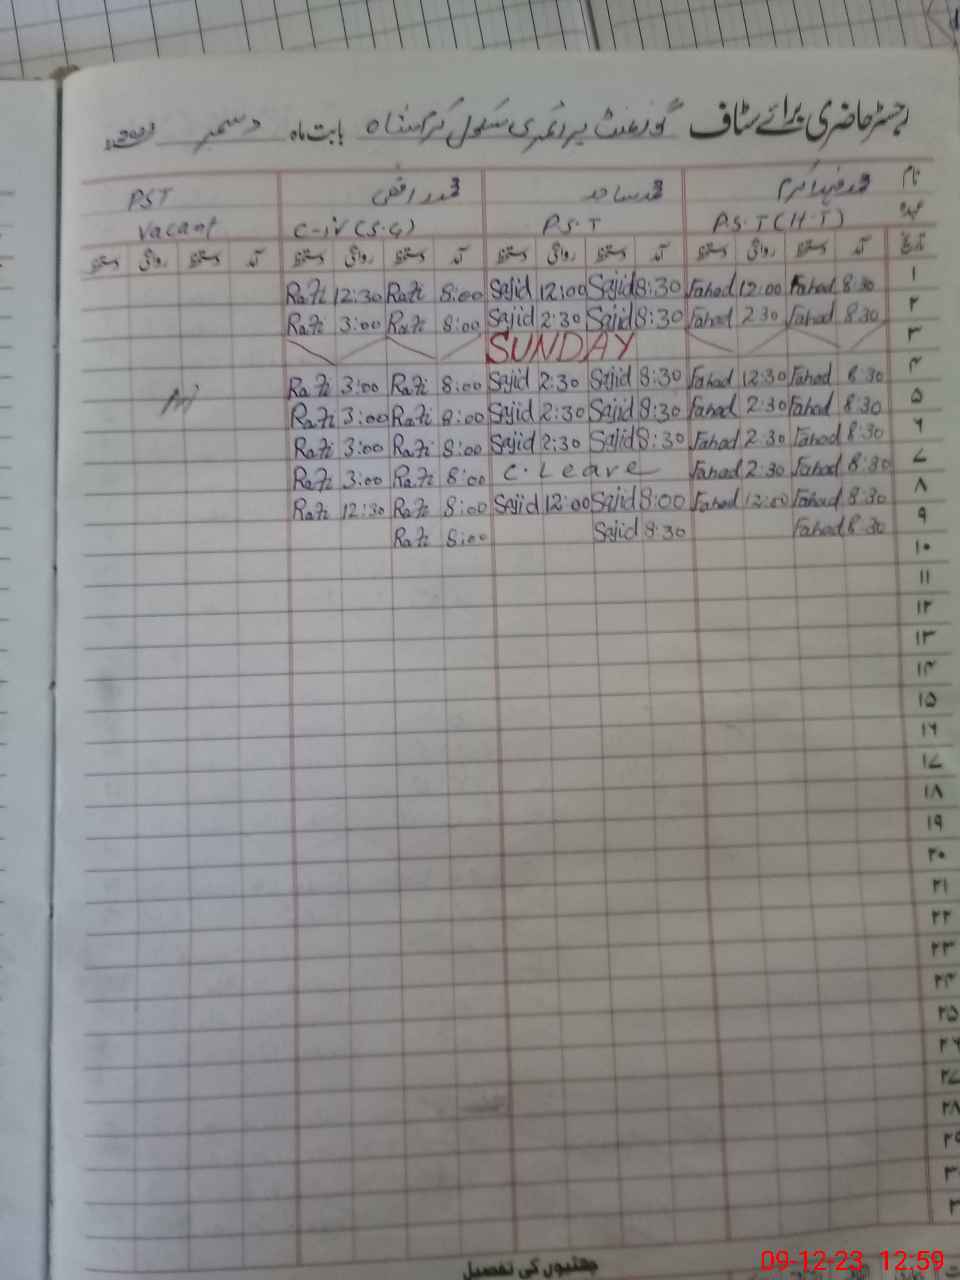 رجسٹر حاضری برائے سٹاف گورنمنٹ پرائمری سکول بابت ماہ دسمبر
نام محمد فہد اکرم محمد ساجد محمد رافع PST
عہدہ P.S.T (H.T) P.S.T C-iV (S.G) Vacant
تاریخ آمد دستخط روانگی دستخط آمد دستخط روانگی دستخط آمد دستخط روانگی دستخط آمد دستخط روانگی دستخط
۱ 8:30 Fahad 12:00 Fahad 8:30 Sajid 12:00 Sajid 8:00 Rafi 12:30 Rafi
۲ 8:30 Fahad 2:30 Fahad 8:30 Sajid 2:30 Sajid 8:00 Rafi 3:00 Rafi
۳ SUNDAY
۴ 8:30 Fahad 12:30 Fahad 8:30 Sajid 2:30 Sajid 8:00 Rafi 3:00 Rafi
۵ 8:30 Fahad 2:30 Fahad 8:30 Sajid 2:30 Sajid 8:00 Rafi 3:00 Rafi
۶ 8:30 Fahad 2:30 Fahad 8:30 Sajid 2:30 Sajid 8:00 Rafi 3:00 Rafi
۷ 8:30 Fahad 2:30 Fahad C. Leave 8:00 Rafi 3:00 Rafi
۸ 8:30 Fahad 12:00 Fahad 8:00 Sajid 12:00 Sajid 8:00 Rafi 12:30 Rafi
۹ 8:30 Fahad 8:30 Sajid 8:00 Rafi
۱۰
۱۱
۱۲
۱۳
۱۴
۱۵
۱۶
۱۷
۱۸
۱۹
۲۰
۲۱
۲۲
۲۳
۲۴
۲۵
۲۶
۲۷
۲۸
۲۹
چھٹیوں کی تفصیل
09-12-23 12:59